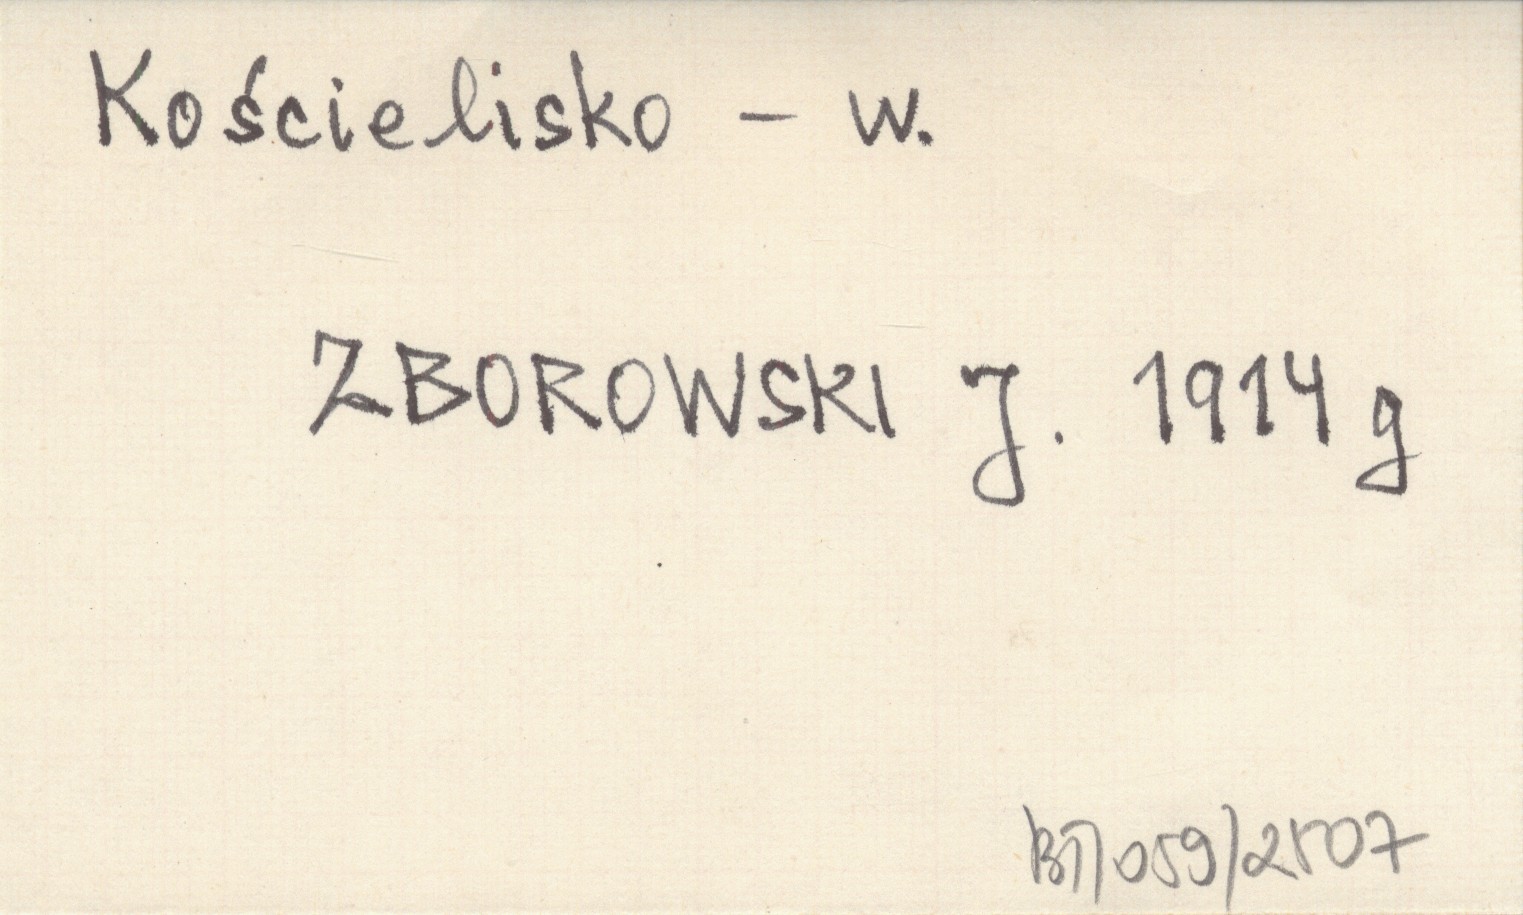 Kościelisko - w.
ZBOROWSKI J. 1914 g
BT/059/2507